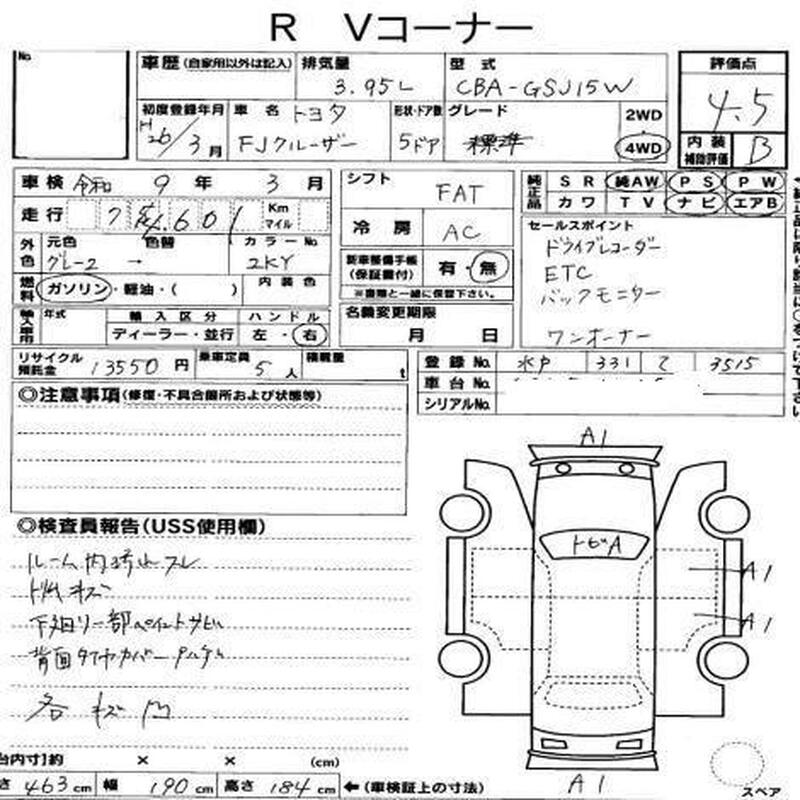 R Vコーナー
No.
車歴(自家用以外は記入) 排気量 型式 評価点
3.95L CBA-GSJ15W 4.5
初度登録年月 車名 トヨタ 形状・ドア数 グレード 2WD
H26/3月 FJクルーザー 5ドア 標準 4WD
内装補助評価 B
車検 令和 9年 3月 シフト FAT 純正品 SR 純AW PS PW
カワ TV ナビ エアB
走行 74,601 Km マイル 冷房 AC セールスポイント
ドライブレコーダー
外色 元色 色替 カラーNo. ETC
グレー2 → 2KY 新車整備手帳(保証書付) 有・無 バックモニター
燃料 ガソリン・軽油・( ) 内装色 ※書類と一緒に保管下さい。
輸入車用 年式 輸入区分 ハンドル 名義変更期限 ワンオーナー
ディーラー・並行 左・右 月 日
リサイクル預託金 13550円 乗車定員 5人 積載量 t 登録No. 水戸 331 て 3515
車台No.
シリアルNo.
◎注意事項(修復・不具合箇所および状態等)
A1
◎検査員報告(USS使用欄)
トビA
A1
A1
下廻り一部ペイントサビ
背面タイヤカバー
各キズ凹
台内寸]約 × × (cm)
さ 463cm 幅 190cm 高さ 184cm ←(車検証上の寸法) A1 スペア